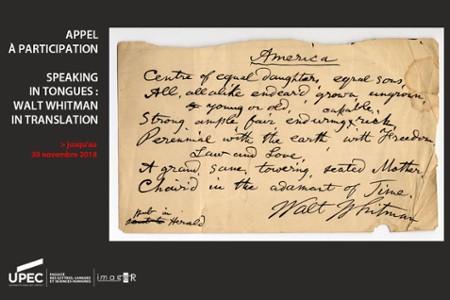 APPEL
À PARTICIPATION
SPEAKING
IN TONGUES :
WALT WHITMAN
IN TRANSLATION
> jusqu'au
30 novembre 2018
America
Centre of equal daughters, equal sons,
All, all alike endear'd, grown, ungrown,
young or old,
Strong, ample, fair, enduring, capable, rich,
Perennial with the earth, with Freedom,
Law and Love,
A grand, sane, towering, seated Mother,
Chair'd in the adamant of Time.
Walt Whitman
Herald
UPEC
FACULTÉ
DES LETTRES, LANGUES
ET SCIENCES HUMAINES
imager